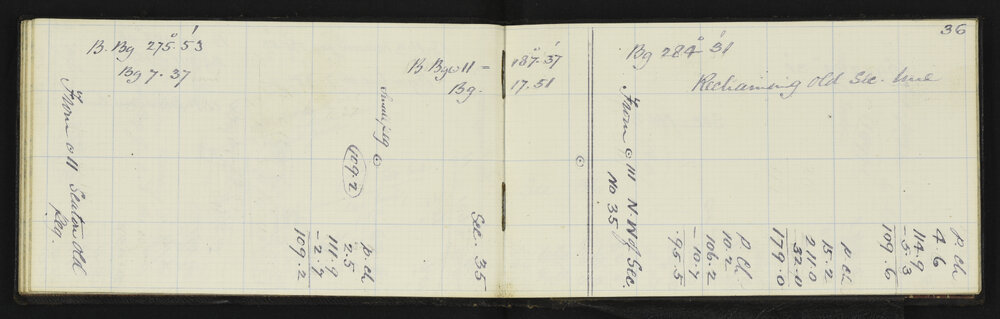 B. Bg 275° 53'
Bg 7. 37
From ⊙ 11 Seaton Old
Peg.
Small peg ⊙
109.2
P. ch
2.5
111.9
-2.7
109.2
B. Bg ⊙ 11 = 187° 37'
Bg. 17.51
Sec. 35
36
Bg 284° 31'
Rechaining Old Sec. line
⊙
From ⊙ 111 N.W of Sec.
No 35
P Ch
10.2
106.2
-10.7
95.5
P ch
15.2
211.0
32.0
179.0
P. ch.
4.6
114.9
-5.3
109.6